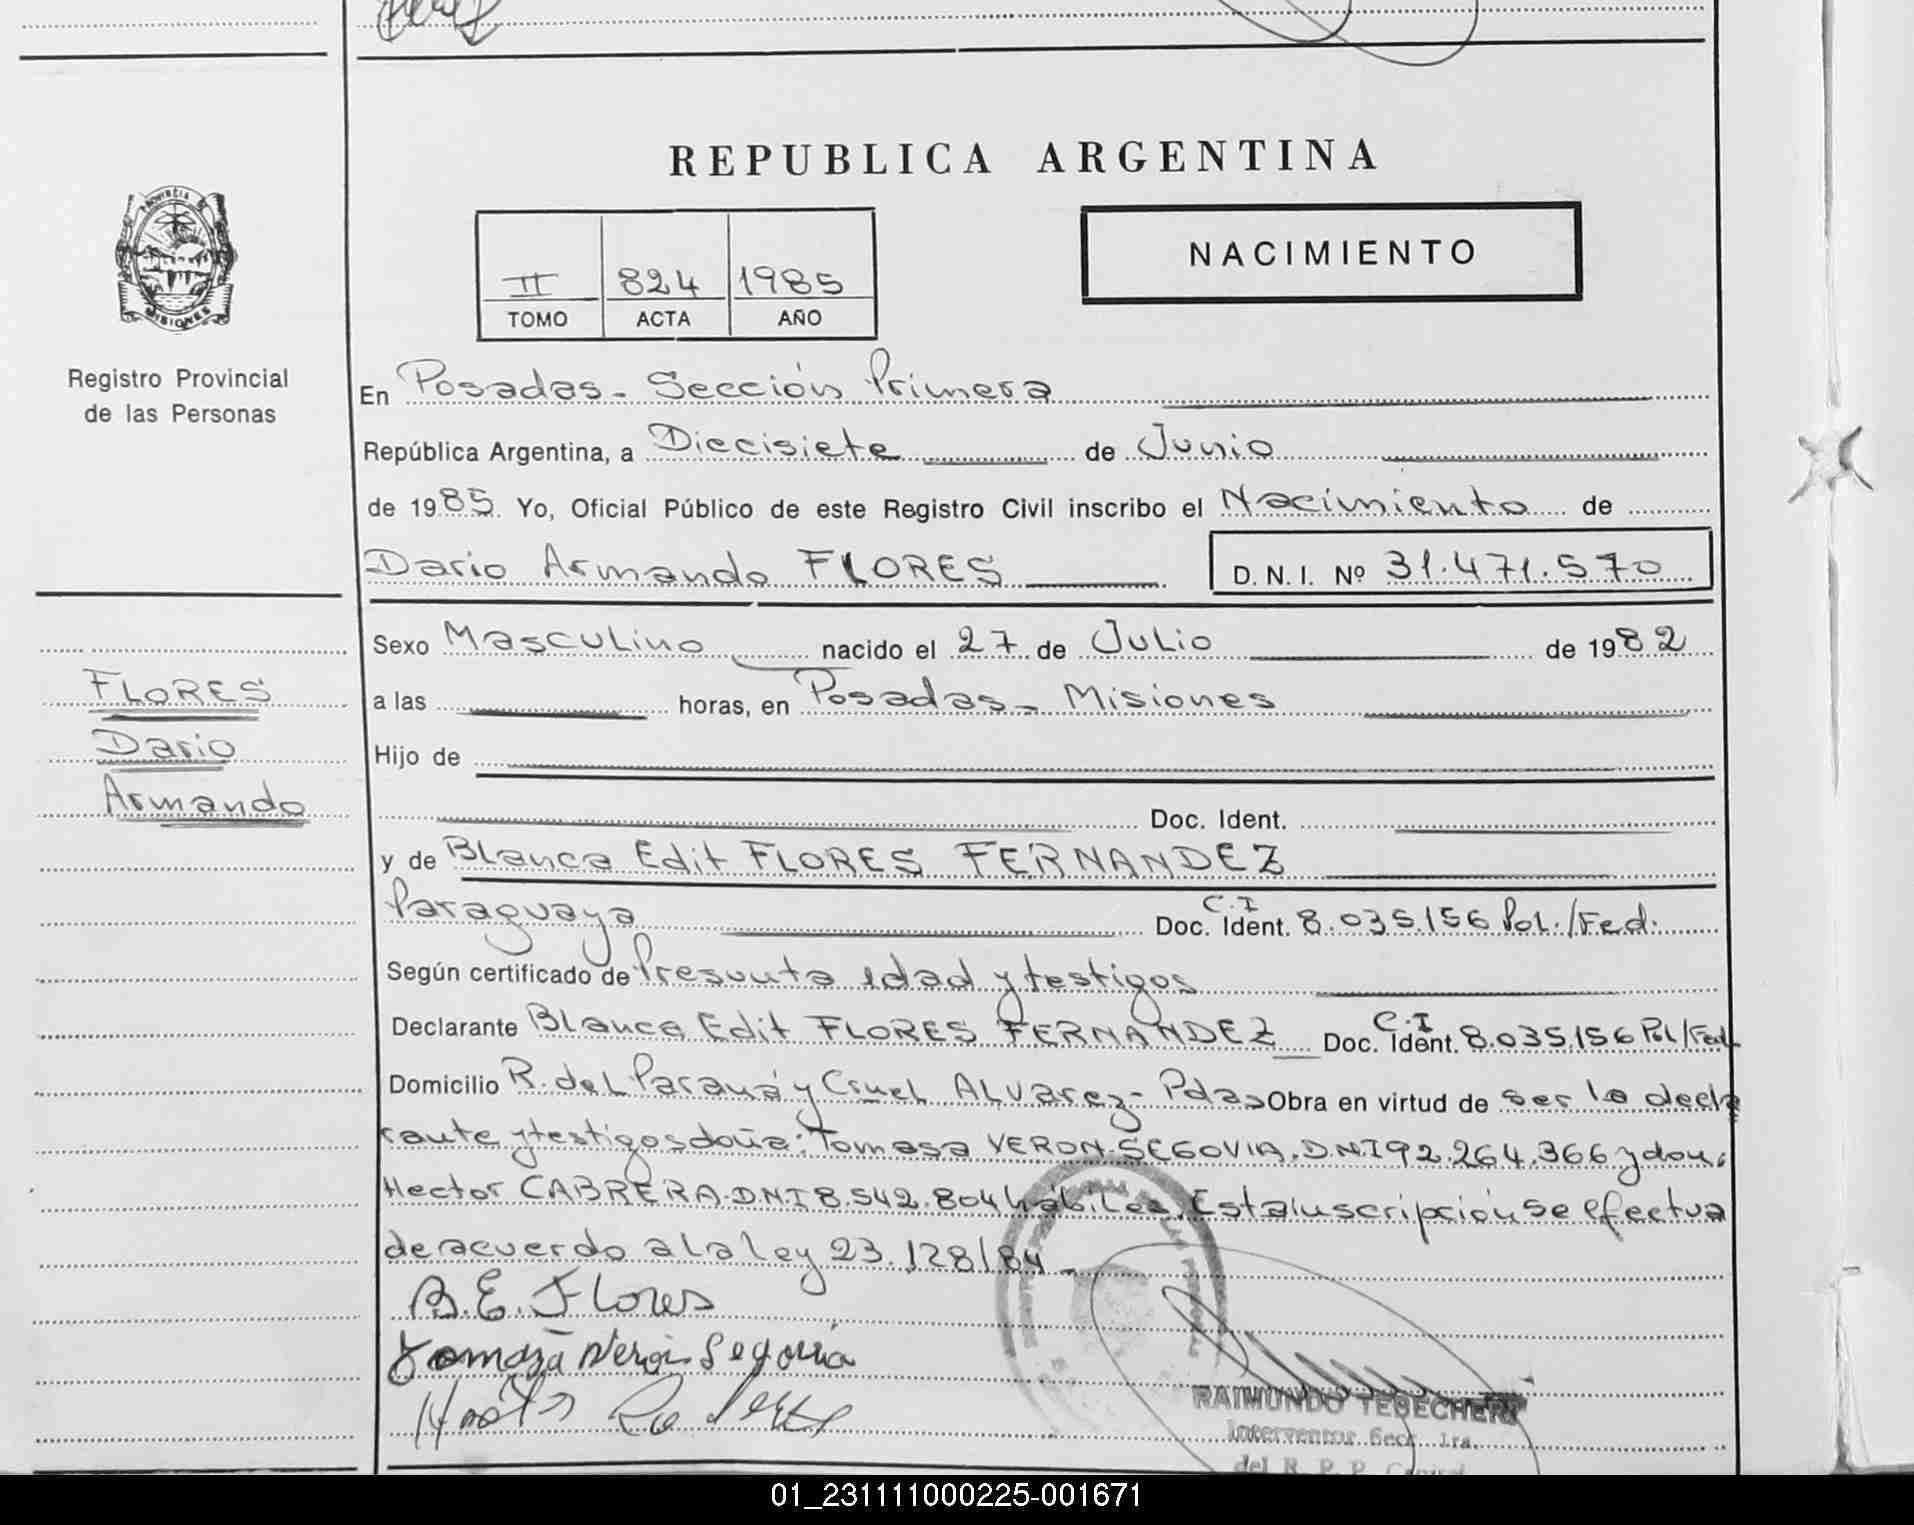 REPUBLICA ARGENTINA
PROVINCIA DE
MISIONES
II 824 1985
TOMO ACTA AÑO
NACIMIENTO
Registro Provincial
de las Personas
En Posadas - Sección Primera
República Argentina, a Diecisiete de Junio
de 1985. Yo, Oficial Público de este Registro Civil inscribo el Nacimiento de
Dario Armando FLORES D. N. I. Nº 31.471.570
Sexo Masculino nacido el 27 de Julio de 1982
FLORES
Dario
Armando
a las horas, en Posadas - Misiones
Hijo de
Doc. Ident.
y de Blanca Edit FLORES FERNANDEZ
Paraguaya Doc. Ident. C.I 8.035.156 Pol./Fed.
Según certificado de Presunta edad y testigos
Declarante Blanca Edit FLORES FERNANDEZ Doc. Ident. C.I 8.035.156 Pol/Fed
Domicilio R. del Paraná y Cruel ALVarez - Pdas Obra en virtud de ser la decla
rante y testigos doña: Tomasa VERON SEGOVIA. DNI 92.264.366 y don:
Hector CABRERA. DNI 8.542.804 hábiles. Esta inscripción se efectua
de acuerdo a la ley 23.128/84 -
B. E. Flores
Segovia
RAIMUNDO TEBECHERI
Interventor Secc. 1ra.
del R. P. P. Capital
01_231111000225-001671